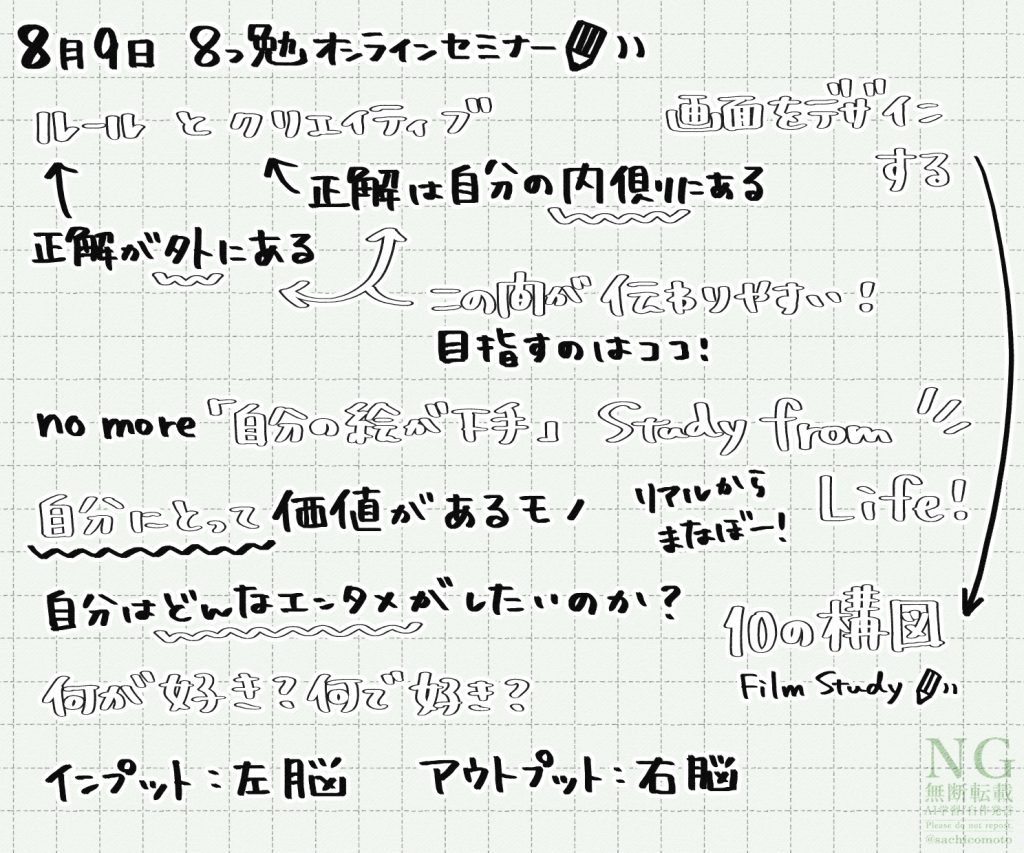 8月9日 8っ勉オンラインセミナー
ルールとクリエイティブ
画面をデザイン
する
正解は自分の内側りにある
正解が外にある
この向が伝わりやすい!
目指すのはココ!
no more「自分の絵が下手」
Study from
Life!
自分にとって価値があるモノ
リアルから
まなぼー!
自分はどんなエンタメがしたいのか?
10の構図
Film Study
何が好き?何で好き?
インプット:左脳 アウトプット:右脳
NG
無断転載
AI学習/自作発言
Please do not repost.
@sachicomoto